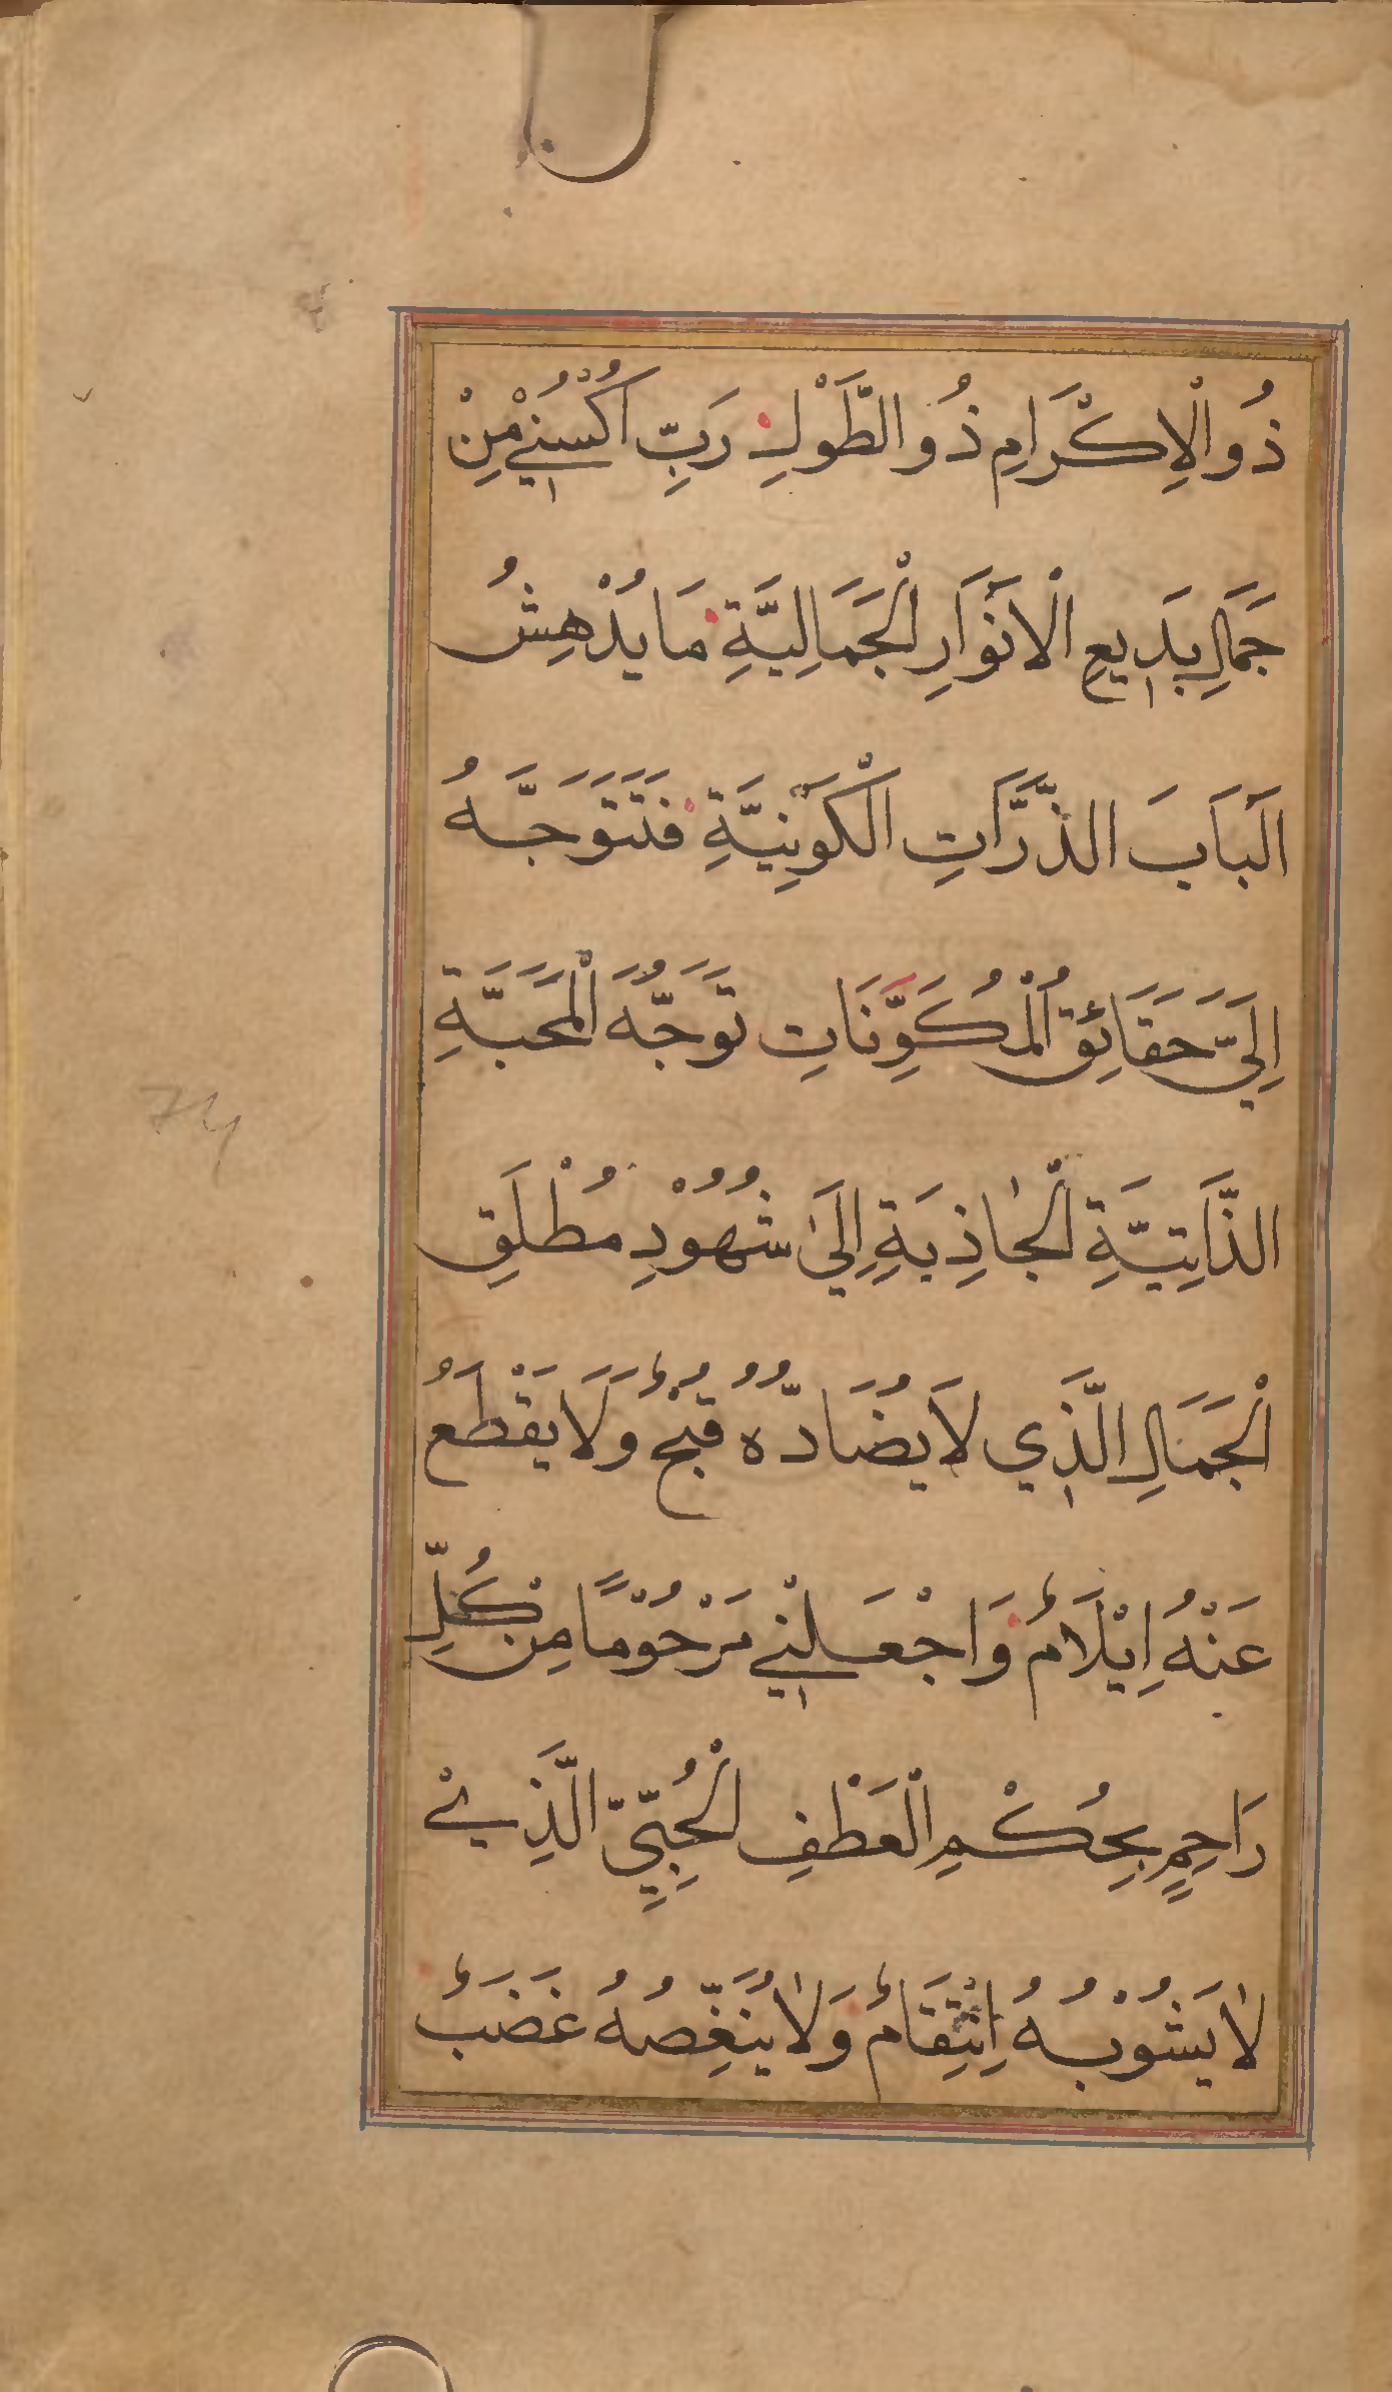 ذُو الْاِكْرَامِ ذُو الطَّوْلِ رَبِّ اكْسُنِي مِنْ
جَمَالِ بَدِيعِ الْاَنْوَارِ الْجَمَالِيَّةِ مَا يُدْهِشُ
اَلْبَابَ الذَّرَّاتِ الْكَوْنِيَّةِ فَتَتَوَجَّهُ
اِلَيَّ حَقَائِقُ الْمُكَوِّنَاتِ تَوَجُّهَ الْمَحَبَّةِ
الذَّاتِيَّةِ الْجَاذِبَةِ اِلَى شُهُوْدِ مُطْلَقِ
الْجَمَالِ الَّذِي لَا يُضَادُّهُ قُبْحٌ وَلَا يَقْطَعُ
عَنْهُ اِيْلَامٌ وَاجْعَلْنِي مَرْحُوْمًا مِنْ كُلِّ
رَاحِمٍ بِحُكْمِ الْعَطْفِ الْحُبِّيِّ الَّذِيْ
لَا يَشُوْبُهُ اِنْتِقَامٌ وَلَا يُنَغِّصُهُ غَضَبٌ
74